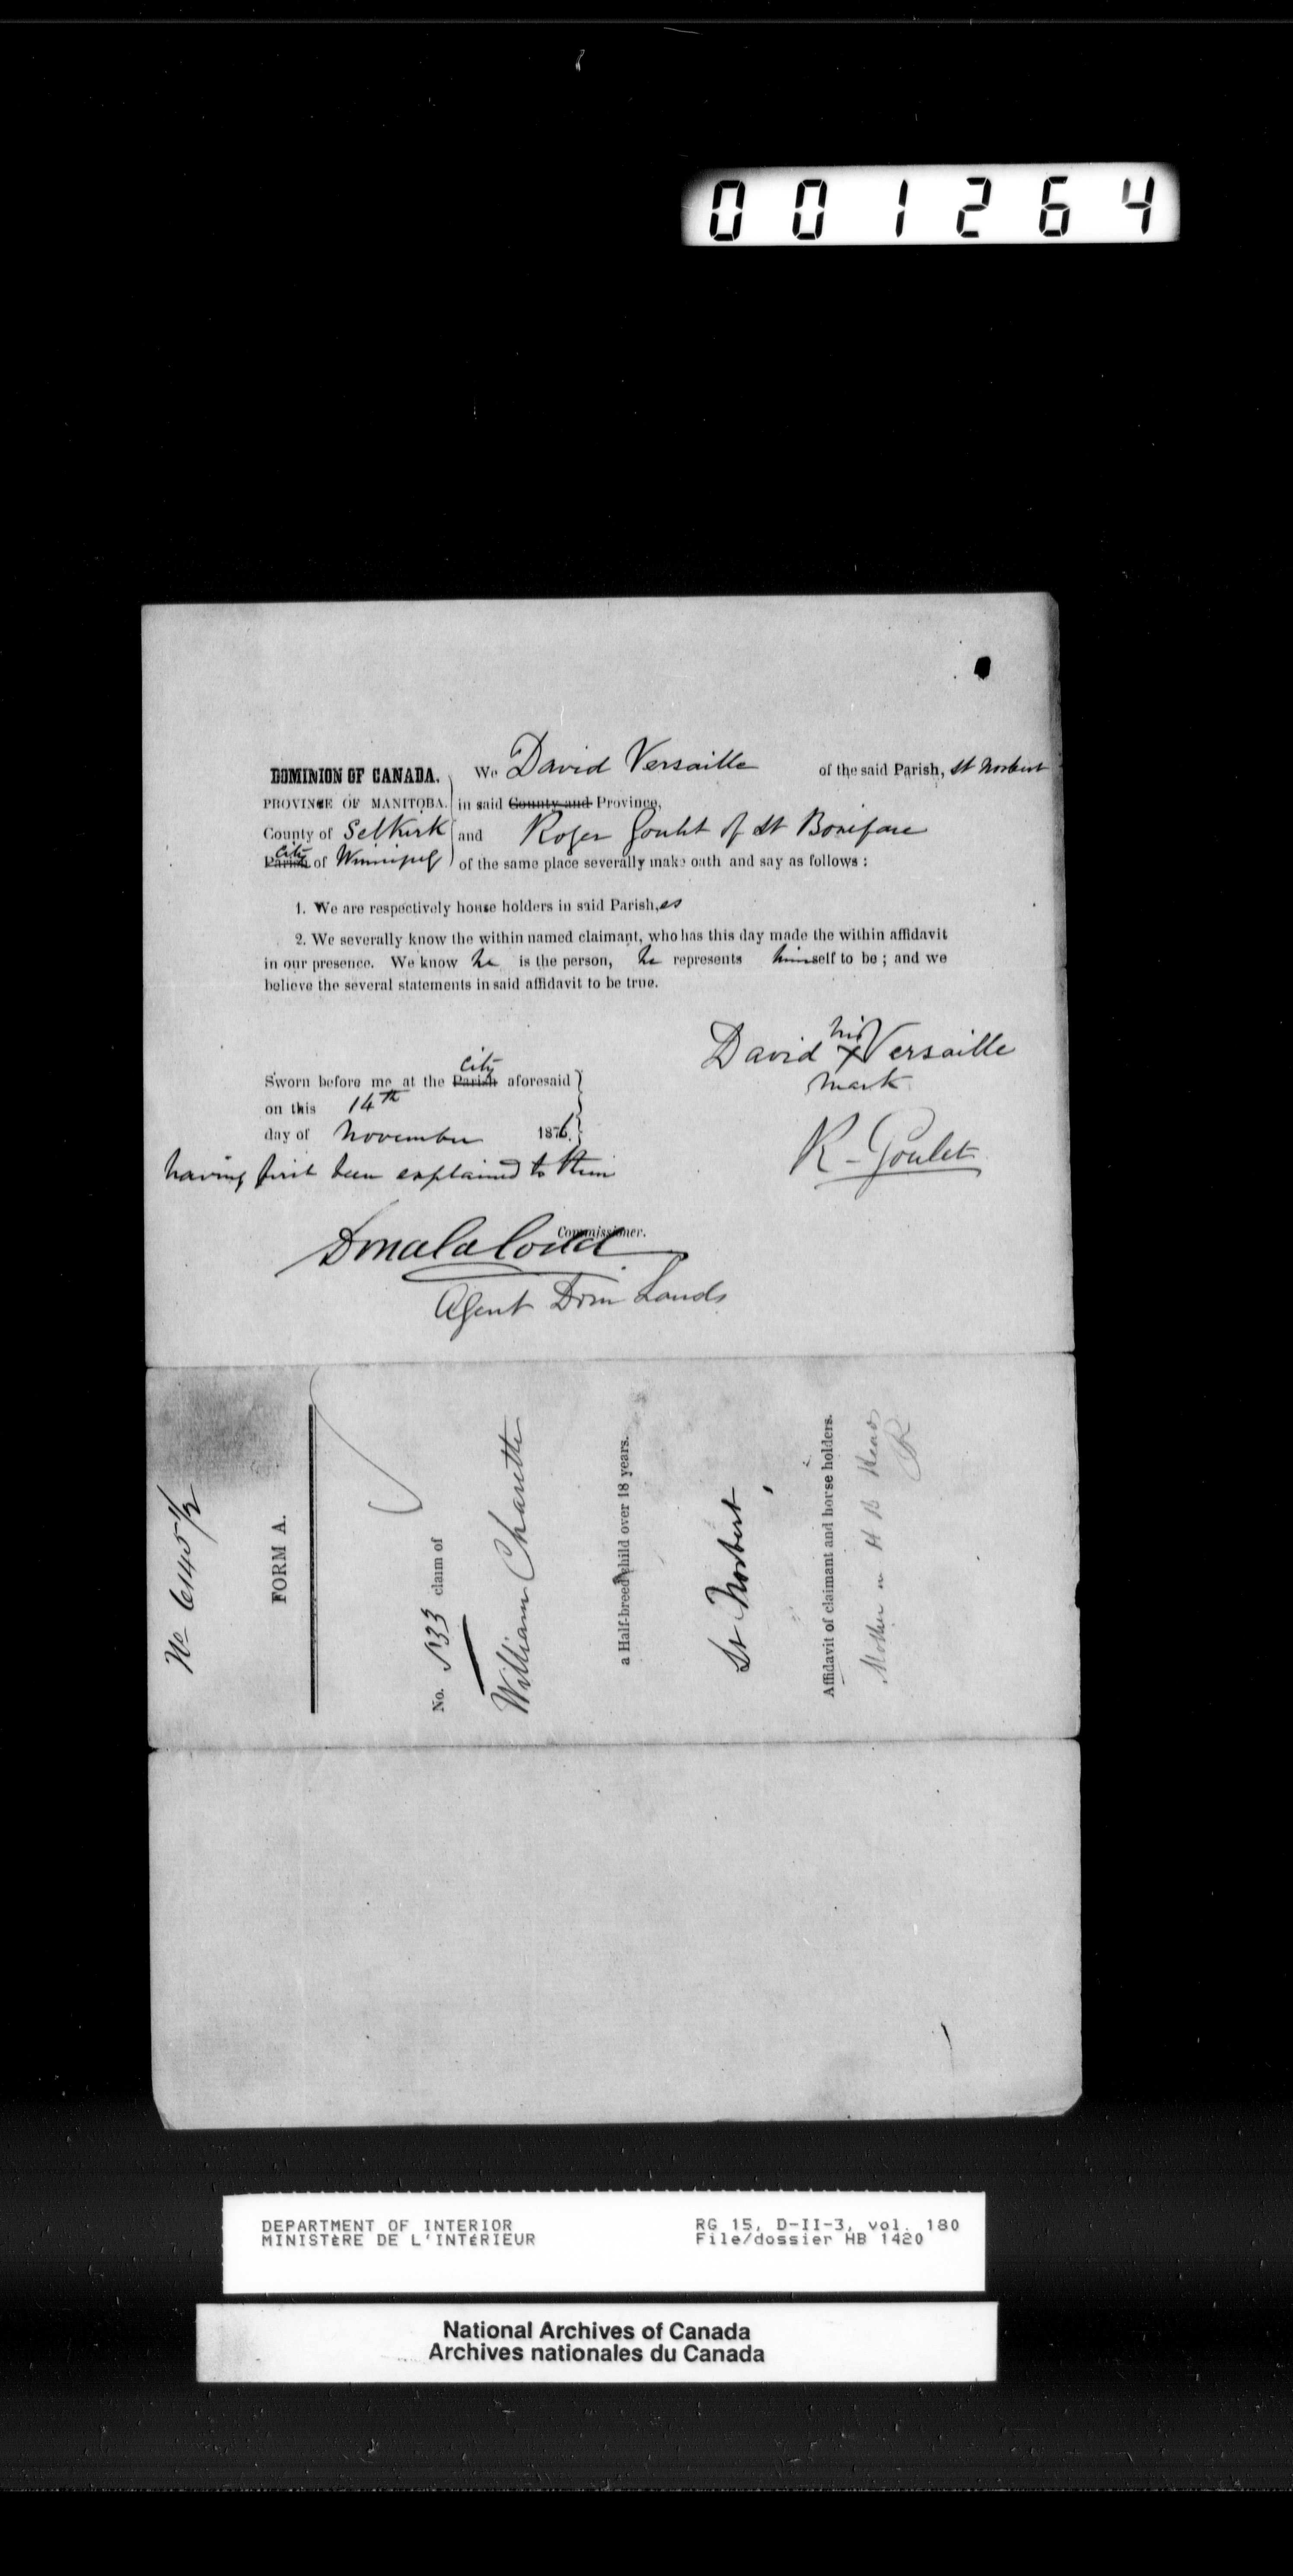 001264
DOMINION OF CANADA. We David Versaille of the said Parish, St Norbert
PROVINCE OF MANITOBA. in said County and Province,
County of Selkirk and Roger Goulet of St Boniface
City
Parish of Winnipeg of the same place severally make oath and say as follows:
1. We are respectively house holders in said Parish,es
2. We severally know the within named claimant, who has this day made the within affidavit
in our presence. We know he is the person, he represents himself to be; and we
believe the several statements in said affidavit to be true.
his
David x Versaille
mark
City
Sworn before me at the Parish aforesaid
on this 14th
day of November 1876.
having first been explained to them
R. Goulet
Commissioner.
Donald Codd
Agent Dom Lands
No 6145 1/2
FORM A.
No. 533 claim of
William Charette
a Half-breed child over 18 years.
St Norbert
Affidavit of claimant and horse holders.
Mother a H B Head
DEPARTMENT OF INTERIOR
MINISTÈRE DE L'INTÉRIEUR
RG 15, D-II-3, vol. 180
File/dossier HB 1420
National Archives of Canada
Archives nationales du Canada